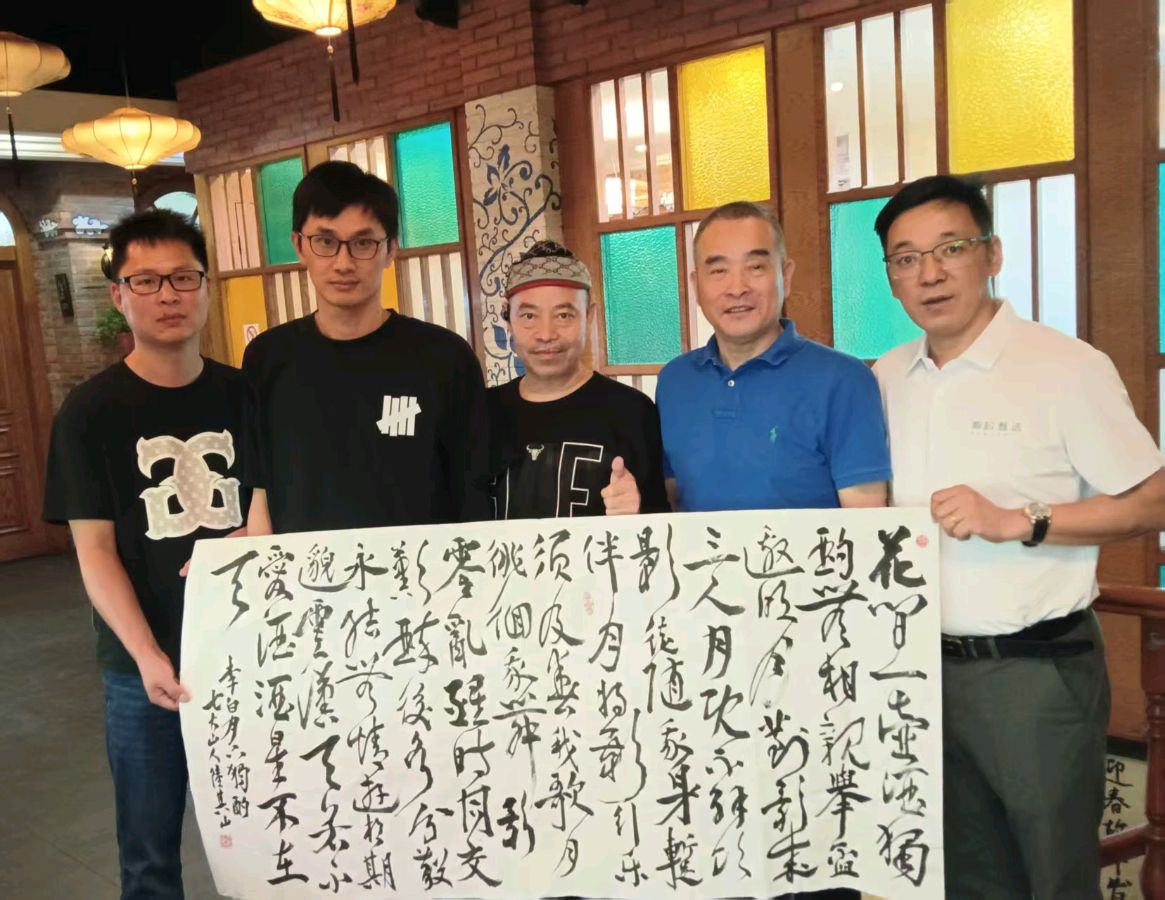 花间一壺酒獨
酌無相親舉盃
邀明月對影成
三人月既不解飲
影徒隨我身暫
伴月將影行樂
須及春我歌月
徘徊我舞影
零亂醒時同交
歡醉後各分散
永結無情遊相期
邈雲漢天若不
愛酒酒星不在
天
李白月下獨酌
山人陸其山
E
迎春